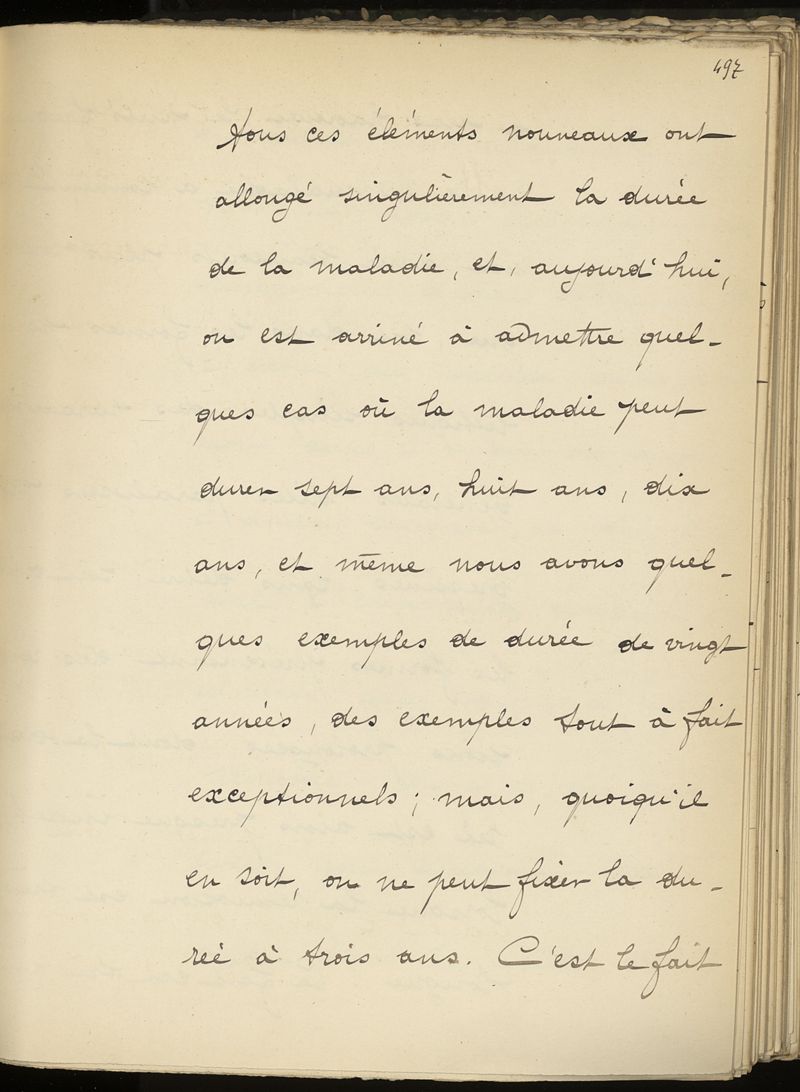 497
Tous ces éléments nouveaux ont
allongé singulièrement la durée
de la maladie, et, aujourd'hui,
on est arrivé à admettre quel-
ques cas où la maladie peut
durer sept ans, huit ans, dix
ans, et même nous avons quel-
ques exemples de durée de vingt
années, des exemples tout à fait
exceptionnels; mais, quoiqu'il
en soit, on ne peut fixer la du-
rée à trois ans. C'est le fait